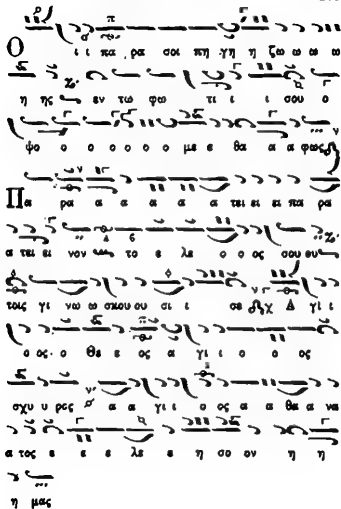 Ο ι ι πα ρα σοι πη γη η ζω ω ω ω
η ης εν τω φω τι ι ι σου ο
ψο ο ο ο ο ο ο με ε θα α α φως
Πα ρα α α α α α τει ει ει πα ρα
α τει ει νον το ε λε ο ο ος σου ευ
τοις γι νω ω σκου ου σι ι σε γι ι
ο ος ο Θε ε ος α γι ι ο ο ος
σχυ υ ρος α α γι ι ο ος α α θα α να
α τος ε ε ε λε ε η σο ον η η
η μας